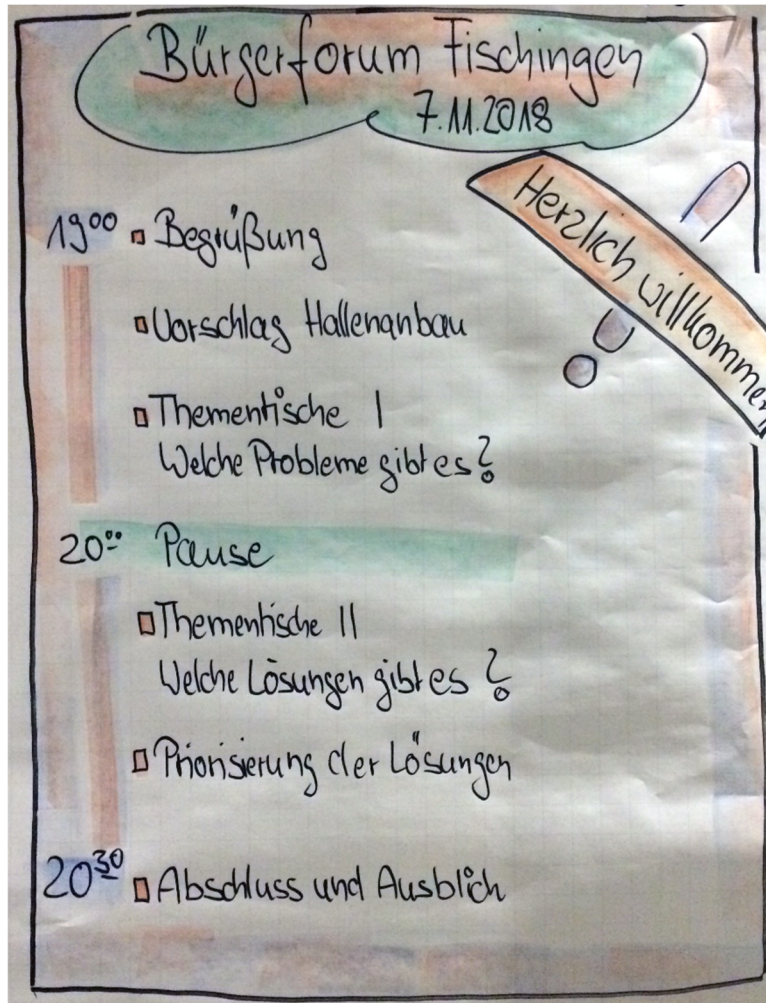 Bürgerforum Fischingen
7.11.2018
Herzlich willkommen
19⁰⁰ Begrüßung
Vorschlag Hallenanbau
Thementische I
Welche Probleme gibt es?
20⁰⁰ Pause
Thementische II
Welche Lösungen gibt es?
Priorisierung der Lösungen
20³⁰ Abschluss und Ausblick